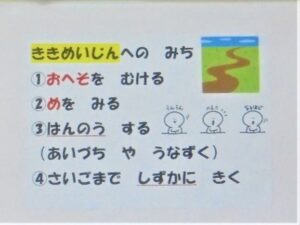 ききめいじんへの みち
①おへそを むける
②めを みる
③はんのう する
(あいづち や うなずく)
④さいごまで しずかに きく